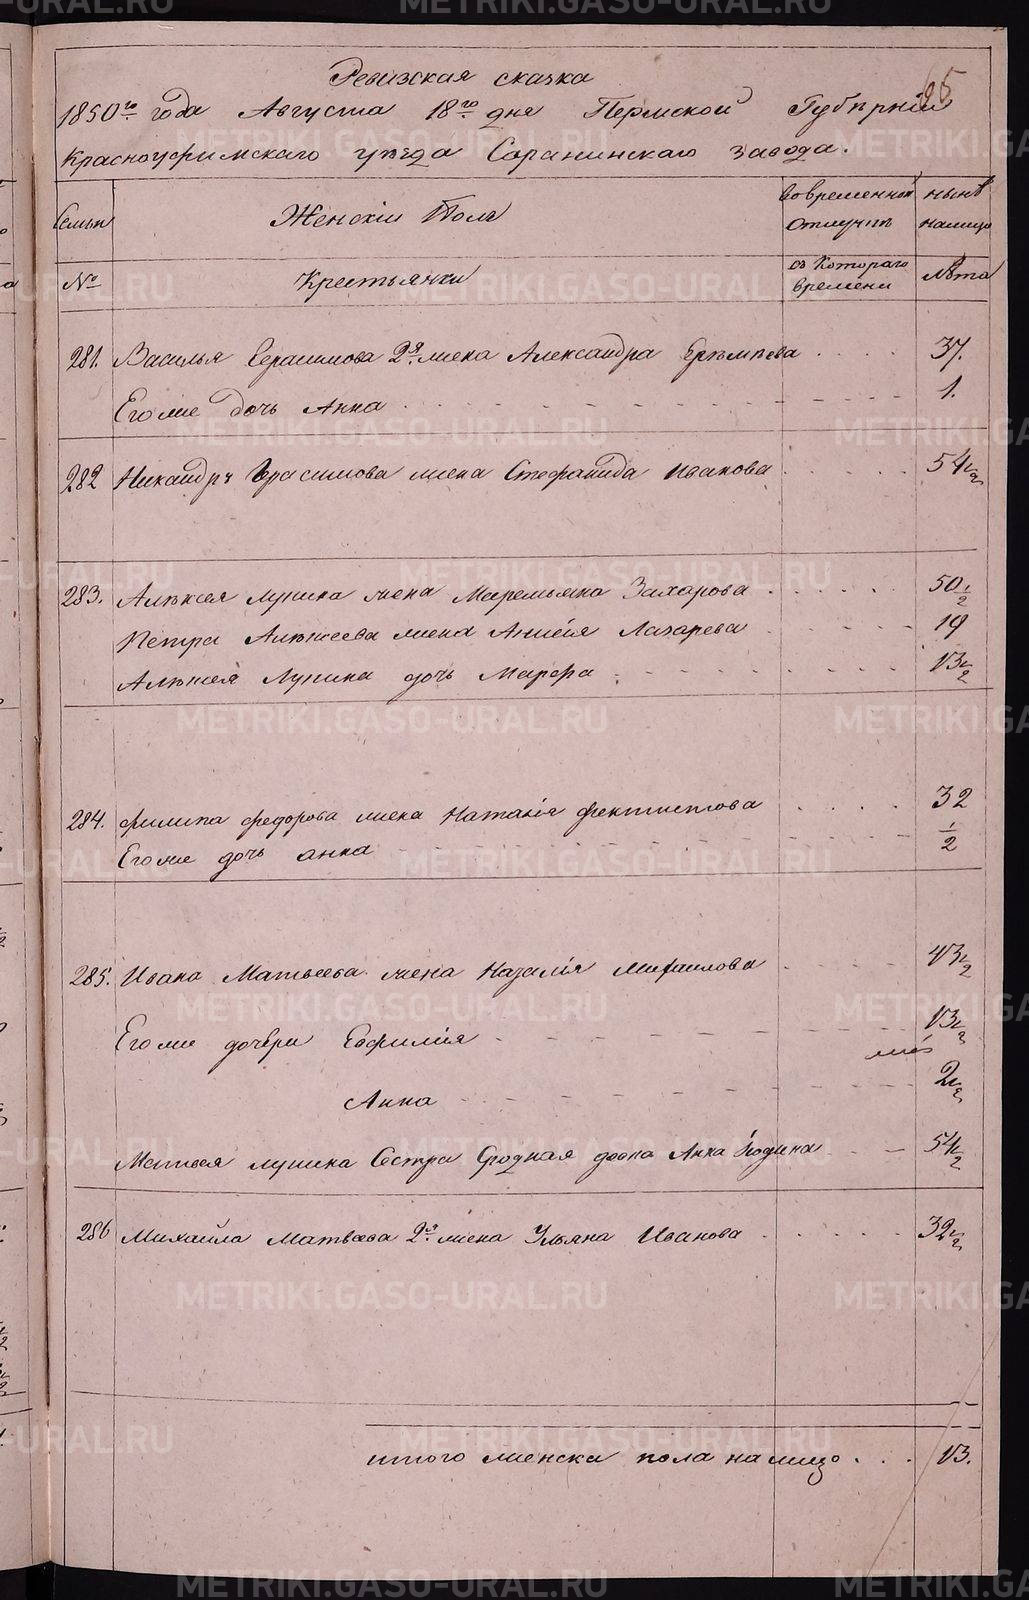 65
Ревизская сказка
1850го года Августа 18го дня Пермской Губерніи
Красноуфимскаго уезда Саранинскаго завода.
Семьи Женскій Полъ во временной отлучкѣ нынѣ налицо
№ Крестьянки съ Котораго времени лѣта
281. Василья Герасимова 2я жена Александра 37.
Его же дочь Анна 1.
282 Никандръ Герасимова жена Стефанида Иванова 54 1/2
283. Алѣксея Лупина жена Маремьяна Захарова 50 1/2
Петра Алѣксеева жена Лазарева 19
Алѣксея Лупина дочь Марфа 13 1/2
284. Филипа Федорова жена Наталія Фектистова 32
Его же дочь Анна 1/2
285. Ивана Матвеева жена Назалія Михаилова 43 1/2
Его же дочери Евфилія 13 1/2
Анна 2 1/2
Матвея Лупина Сестра Сродная Анна 54 1/2
286 Михайла Матвѣева 2я жена Ульяна Иванова 32 1/2
итого женска пола налицо 13.
METRIKI.GASO-URAL.RU